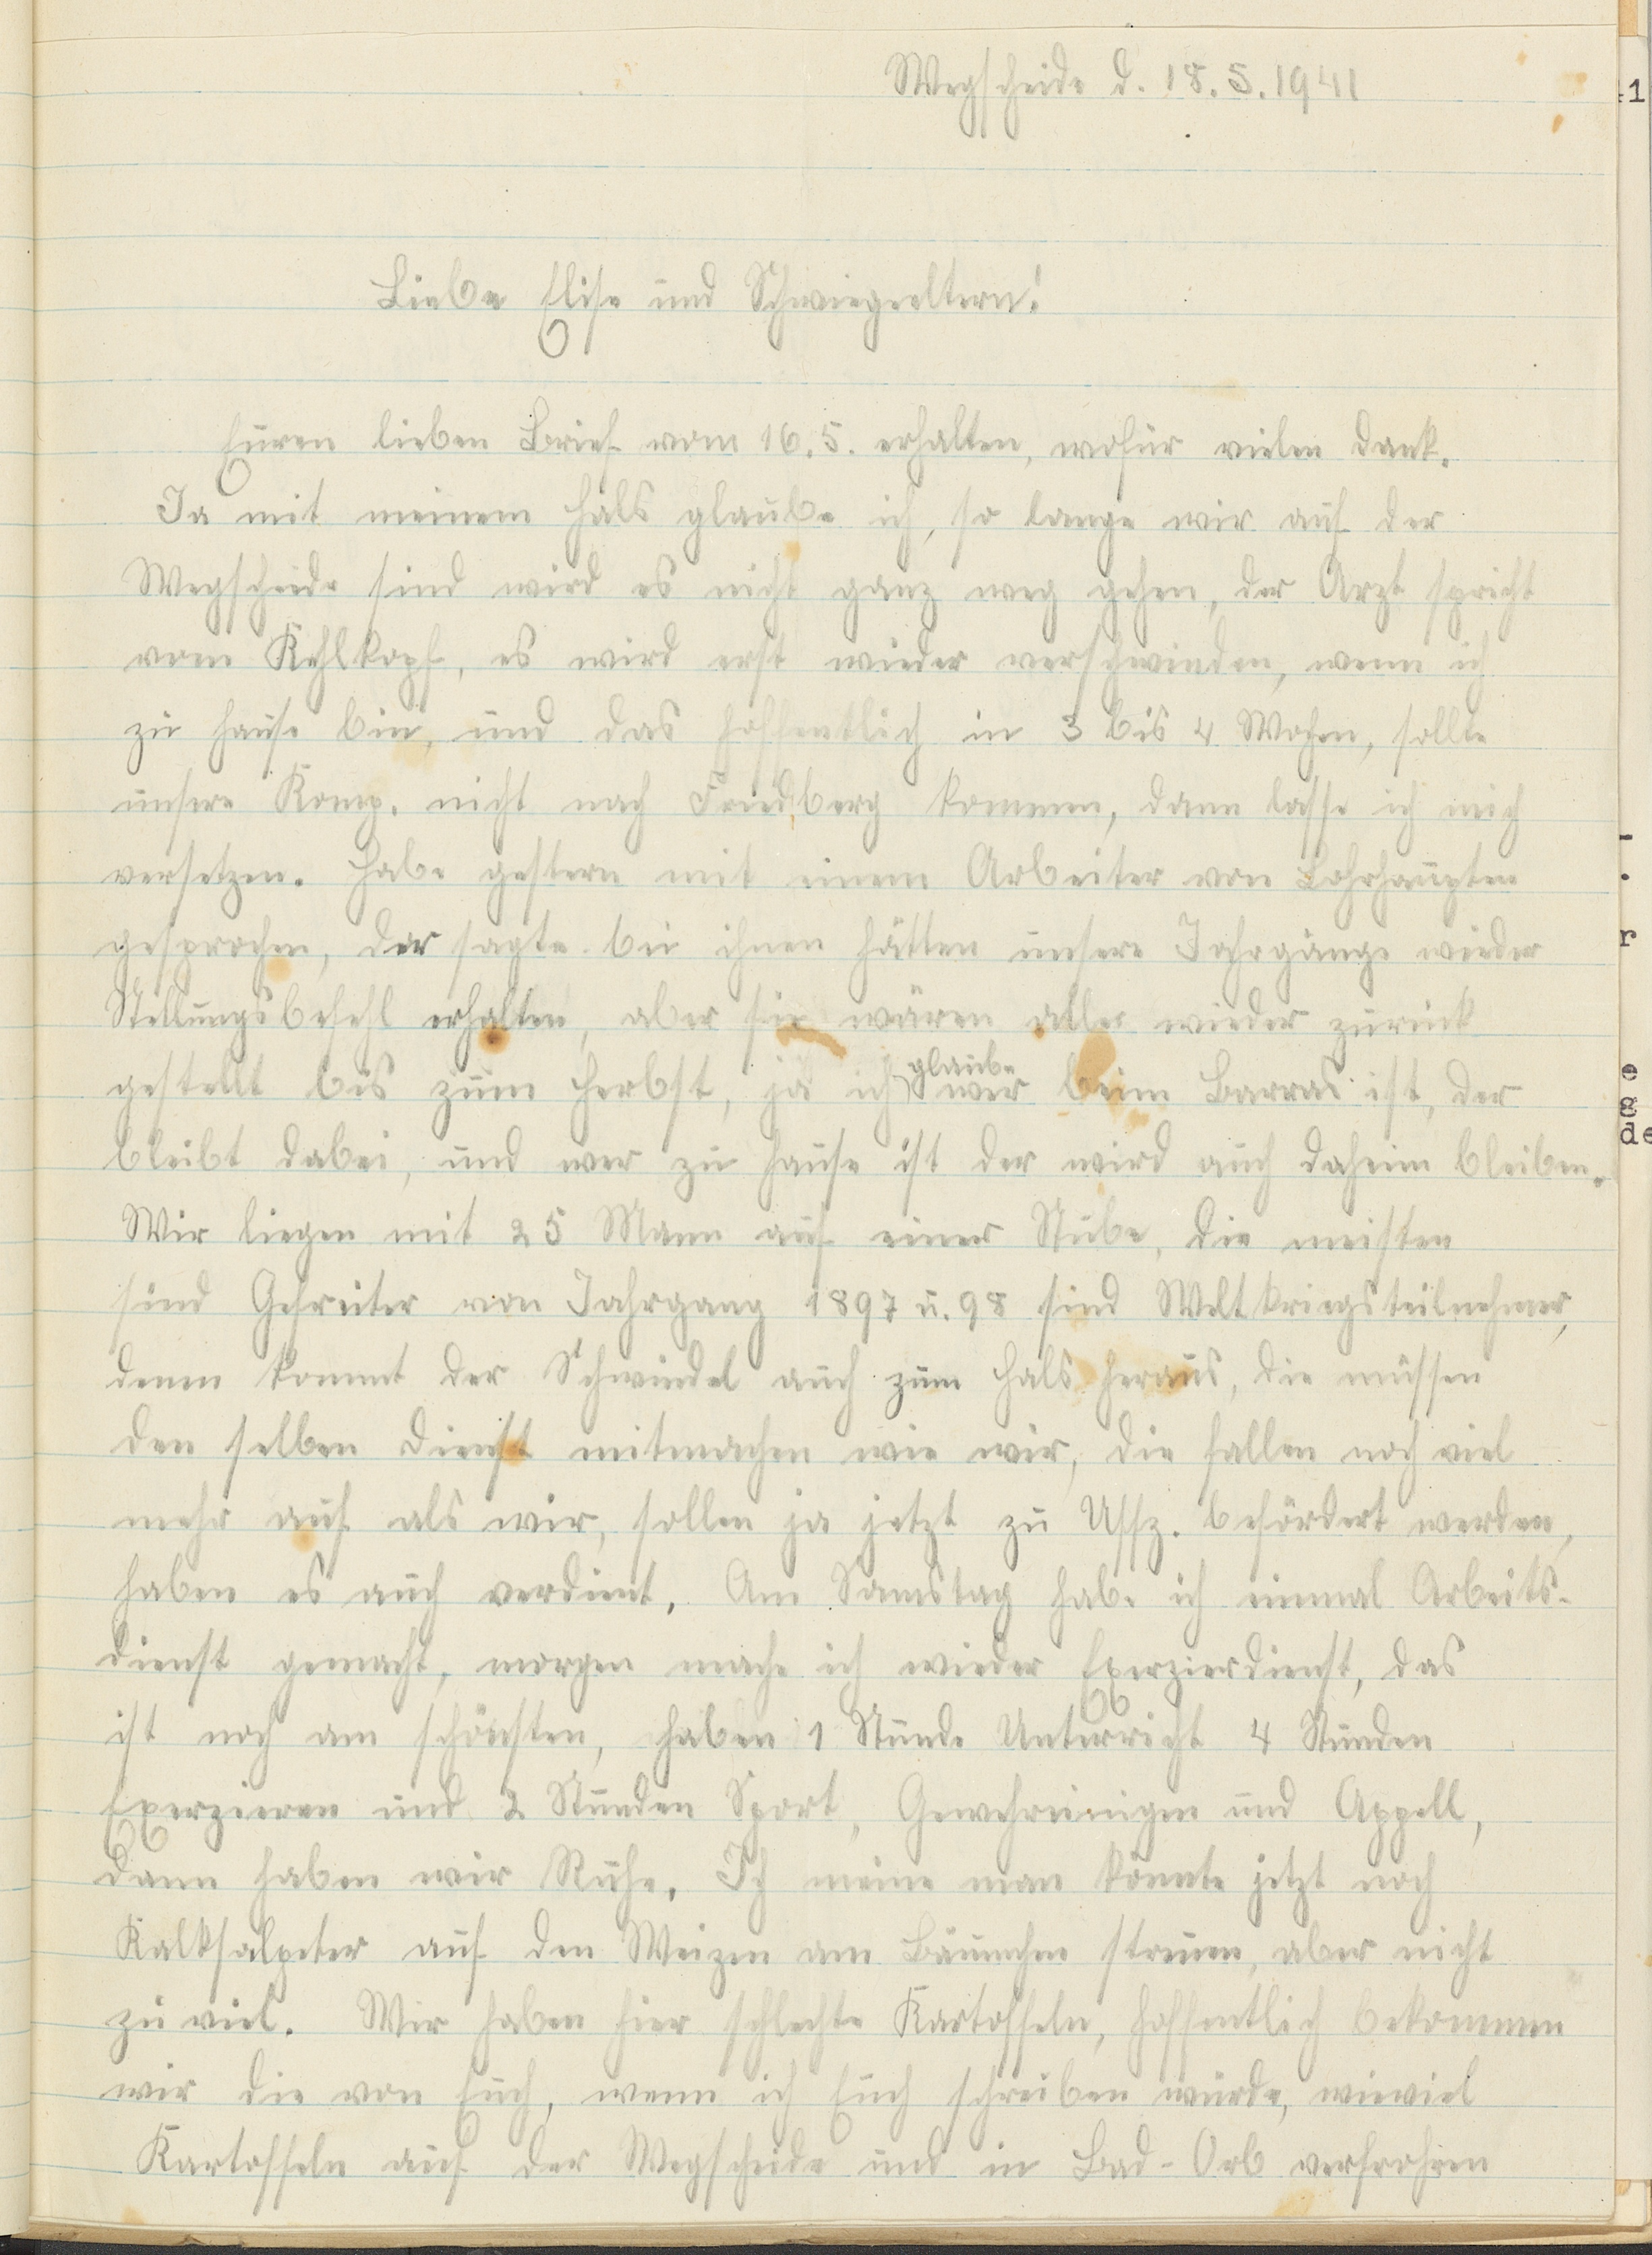 Wegscheide d. 18.5.1941
Liebe Elise und Schwiegereltern!
Euren lieben Brief vom 16.5. erhalten, wofür vielen Dank.
Ja mit meinem Hals glaube ich, so lange wir auf der
Wegscheide sind wird es nicht ganz weg gehen, der Arzt spricht
vom Kehlkopf, es wird erst wieder verschwinden, wenn ich
zu Hause bin, und das hoffentlich in 3 bis 4 Wochen, sollte
unsere Komp. nicht nach Friedberg kommen, dann lasse ich mich
versetzen. Habe gestern mit einem Arbeiter von Lohrhaupten
gesprochen, der sagte bei ihnen hätten unsere Jahrgänge wieder
Stellungsbefehl erhalten, aber sie wären alle wieder zurück
gestellt bis zum Herbst, ja ich glaube wer beim Barras ist, der
bleibt dabei, und wer zu Hause ist der wird auch daheim bleiben.
Wir liegen mit 25 Mann auf einer Stube, die meisten
sind Gefreiter von Jahrgang 1897 u. 98 sind Weltkriegsteilnehmer,
denen kommt der Schwindel auch zum Hals heraus, die müssen
den selben Dienst mitmachen wie wir, die fallen noch viel
mehr auf als wir, sollen ja jetzt zu Uffz. befördert werden,
haben es auch verdient. Am Samstag habe ich einmal Arbeits-
dienst gemacht, morgen mache ich wieder Exerzierdienst, das
ist noch am schönsten, haben 1 Stunde Unterricht 4 Stunden
Exerzieren und 2 Stunden Sport, Gewehreinigen und Appell,
dann haben wir Ruhe. Ich meine man könnte jetzt noch
Kalksalpeter auf den Weizen am Bäumchen streuen, aber nicht
zu viel. Wir haben hier schlechte Kartoffeln, hoffentlich bekommen
wir die von Euch, wenn ich Euch schreiben würde, wieviel
Kartoffeln auf der Wegscheide und in Bad-Orb verfrohren